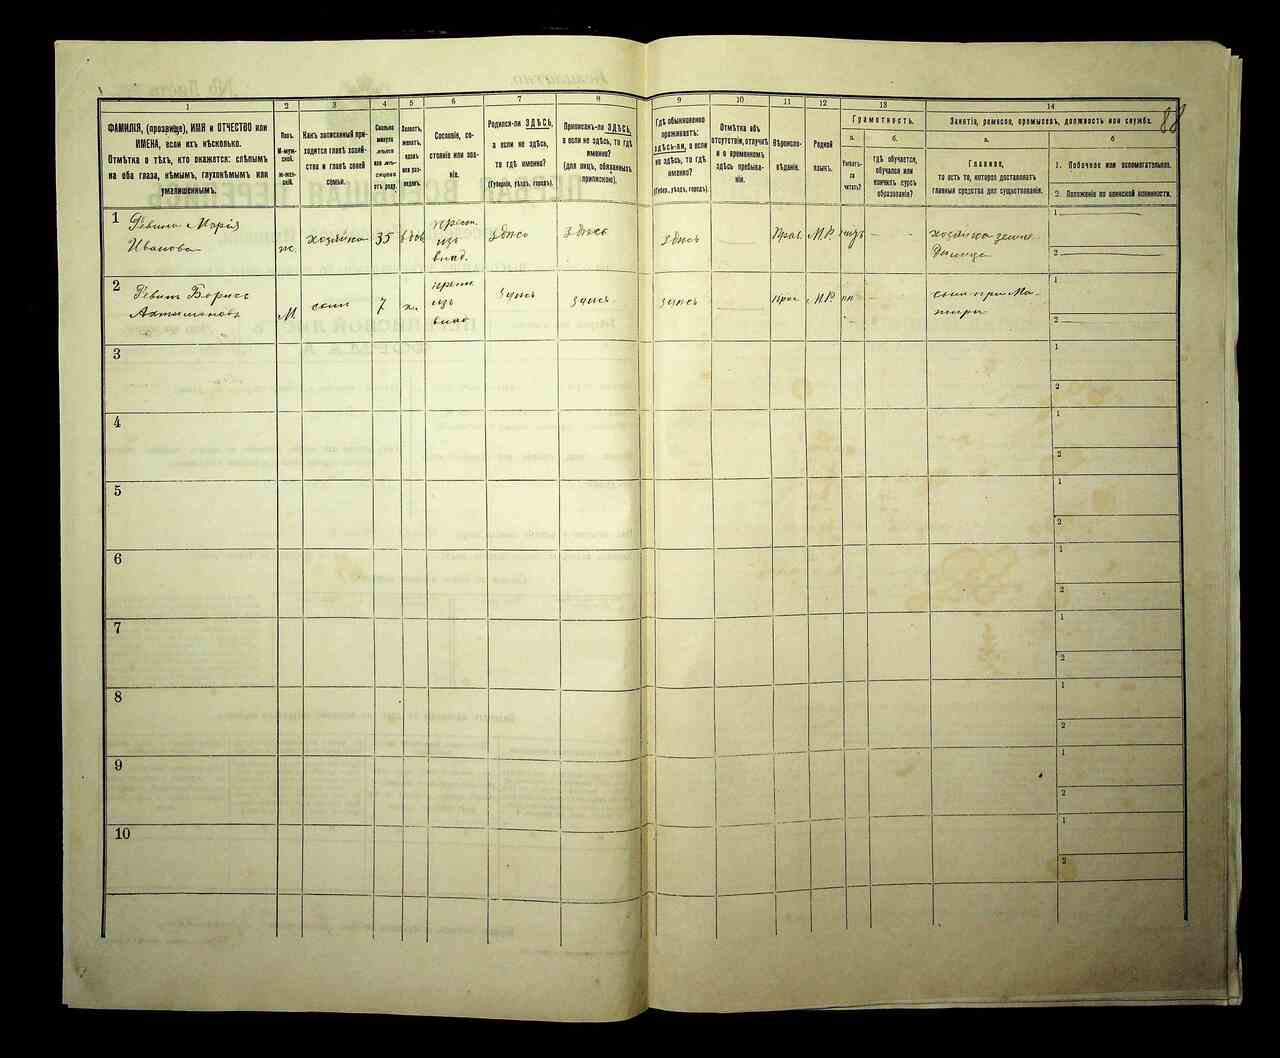 88
1
2
3
4
5
6
7
8
9
10
11
12
13
14
ФАМИЛІЯ, (прозвище), ИМЯ и ОТЧЕСТВО или
ИМЕНА, если ихъ нѣсколько.
Отмѣтка о тѣхъ, кто окажется: слѣпымъ
на оба глаза, нѣмымъ, глухонѣмымъ или
умалишеннымъ.
Полъ.
М-муж-
ской.
Ж-жен-
скій.
Какъ записанный при-
ходится главѣ хозяй-
ства и главѣ своей
семьи.
Сколько
минуло
лѣтъ
или мѣ-
сяцевъ
отъ роду.
Холостъ,
женатъ,
вдовъ
или раз-
веденъ.
Сословіе, со-
стояніе или зва-
ніе.
Родился-ли ЗДѢСЬ,
а если не здѣсь,
то гдѣ именно?
(Губернія, уѣздъ, городъ).
Приписанъ-ли ЗДѢСЬ,
а если не здѣсь, то гдѣ
именно?
(для лицъ, обязанныхъ
припискою).
Гдѣ обыкновенно
проживаетъ:
здѣсь-ли, а если
не здѣсь, то гдѣ
именно?
(Губерн., уѣздъ, городъ).
Отмѣтка объ
отсутствіи, отлучкѣ
и о временномъ
здѣсь пребыва-
ніи.
Вѣроиспо-
вѣданіе.
Родной
языкъ.
Грамотность.
а.
б.
Умѣетъ-
ли
читать?
гдѣ обучается,
обучался или
кончилъ курсъ
образованія?
Занятіе, ремесло, промыселъ, должность или служба.
а.
б
Главное,
то есть то, которое доставляетъ
главныя средства для существованія.
1. Побочное или вспомогательное.
2. Положеніе по воинской повинности.
1
Марія
Иванова
ж.
хозяйка
35
вдов
крест.
изъ
влад.
Здѣсь
Здѣсь
Здѣсь
Прав.
М.Р.
хозяйка земле
1
2
2
Борисъ
М
сынъ
7
х.
изъ
влад
Здѣсь
Здѣсь
Здѣсь
прав
М.Р.
сынъ при Ма-
тери
1
2
3
1
2
4
1
2
5
1
2
6
1
2
7
1
2
8
1
2
9
1
2
10
1
2